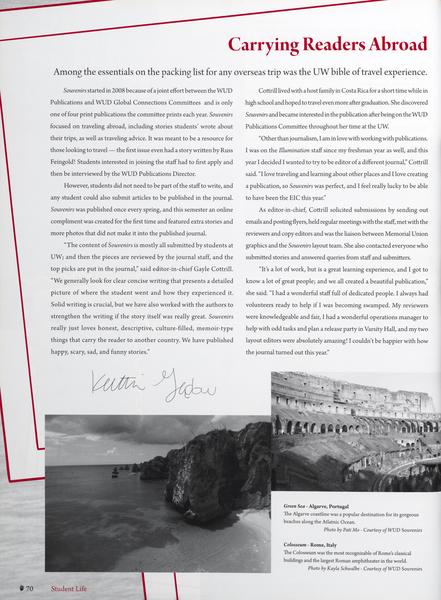 Carrying Readers Abroad
Among the essentials on the packing list for any overseas trip was the UW bible of travel experience.
Souvenirs started in 2008 because of a joint effort between the WUD
Publications and WUD Global Connections Committees and is only
one of four print publications the committee prints each year. Souvenirs
focused on traveling abroad, including stories students' wrote about
their trips, as well as traveling advice. It was meant to be a resource for
those looking to travel — the first issue even had a story written by Russ
Feingold! Students interested in joining the staff had to first apply and
then be interviewed by the WUD Publications Director.
However, students did not need to be part of the staff to write, and
any student could also submit articles to be published in the journal.
Souvenirs was published once every spring, and this semester an online
compliment was created for the first time and featured extra stories and
more photos that did not make it into the published journal.
"The content of Souvenirs is mostly all submitted by students at
UW; and then the pieces are reviewed by the journal staff, and the
top picks are put in the journal," said editor-in-chief Gayle Cottrill.
"We generally look for clear concise writing that presents a detailed
picture of where the student went and how they experienced it.
Solid writing is crucial, but we have also worked with the authors to
strengthen the writing if the story itself was really great. Souvenirs
really just loves honest, descriptive, culture-filled, memoir-type
things that carry the reader to another country. We have published
happy, scary, sad, and funny stories."
Cottrill lived with a host family in Costa Rica for a short time while in
high school and hoped to travel even more after graduation. She discovered
Souvenirs and became interested in the publication after being on the WUD
Publications Committee throughout her time at the UW.
"Other than journalism, I am in love with working with publications.
I was on the Illumination staff since my freshman year as well, and this
year I decided I wanted to try to be editor of a different journal," Cottrill
said. "I love traveling and learning about other places and I love creating
a publication, so Souvenirs was perfect, and I feel really lucky to be able
to have been the EIC this year."
As editor-in-chief, Cottrill solicited submissions by sending out
emails and posting flyers, held regular meetings with the staff, met with the
reviewers and copy editors and was the liaison between Memorial Union
graphics and the Souvenirs layout team. She also contacted everyone who
submitted stories and answered queries from staff and submitters.
"It's a lot of work, but is a great learning experience, and I got to
know a lot of great people; and we all created a beautiful publication,"
she said. "I had a wonderful staff full of dedicated people. I always had
volunteers ready to help if I was becoming swamped. My reviewers
were knowledgeable and fair, I had a wonderful operations manager to
help with odd tasks and plan a release party in Varsity Hall, and my two
layout editors were absolutely amazing! I couldn't be happier with how
the journal turned out this year."
Green Sea - Algarve, Portugal
The Algarve coastline was a popular destination for its gorgeous
beaches along the Atlantic Ocean.
Photo by Pati Mo - Courtesy of WUD Souvenirs
Colosseum - Rome, Italy
The Colosseum was the most recognizable of Rome's classical
buildings and the largest Roman amphitheater in the world.
Photo by Kayla Schwalbe - Courtesy of WUD Souvenirs
70 Student Life